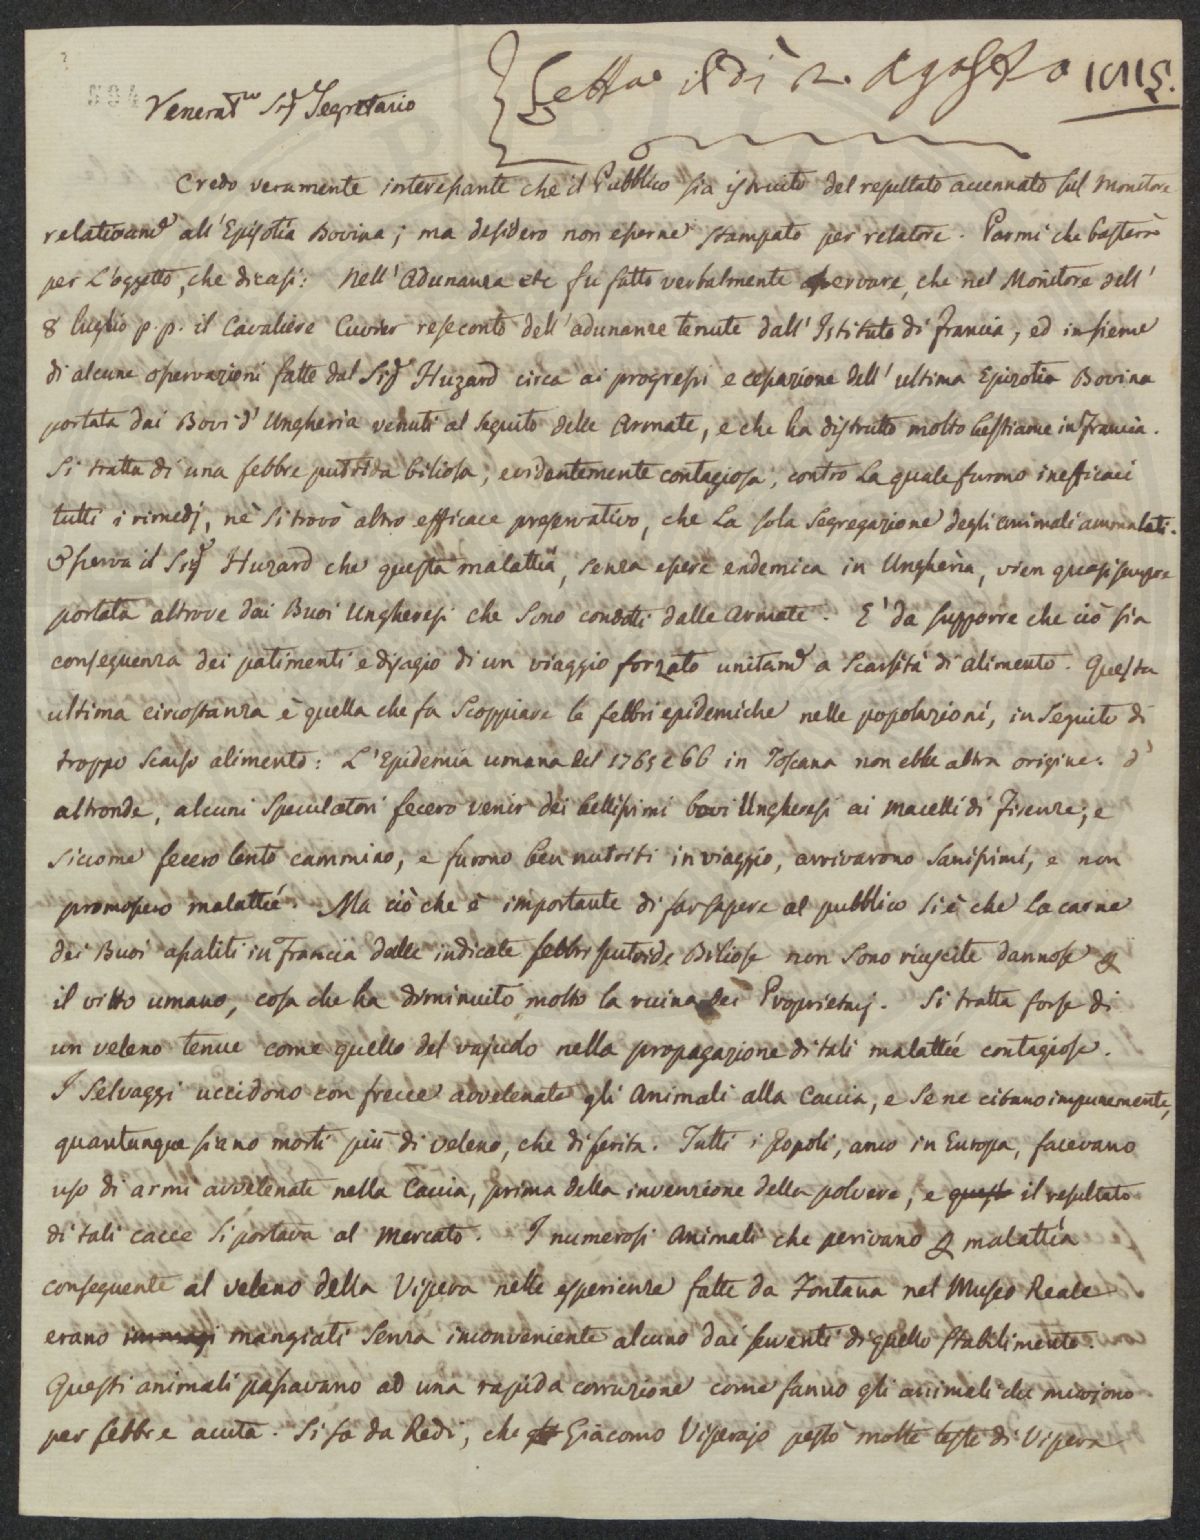 594
Letta il dì 2. Agosto 1815.
Venerat.mo Sig.r Segretario
Credo veramente interessante che il Pubblico sia istruito del resultato accennato sul Monitore
relativam.e all'Episotia Bovina; ma desidero non esserne stampato per relatore. Parmi che basterà
per l'oggetto, che dicasi: Nell'Adunanza etc fu fatto verbalmente osservare, che nel Monitore dell'
8 luglio p.p. il Cavaliere Cuvier rese conto dell'adunanze tenute dall'Istituto di Francia, ed insieme
di alcune osservazioni fatte dal Sig.r Huzard circa ai progressi e cessazione dell'ultima Epizotia Bovina
portata dai Bovi d'Ungheria venuti al seguito delle Armate, e che ha distrutto molto bestiame in Francia.
Si tratta di una febbre putrida biliosa, evidentemente contagiosa, contro la quale furono inefficaci
tutti i rimedj, nè si trovò altro efficace preservativo, che la sola segregazione degli animali ammalati.
Osserva il Sig.r Huzard che questa malattia, senza essere endemica in Ungheria, vien quasi sempre
portata altrove dai Buoi Ungheresi che sono condotti dalle Armate. E' da supporre che ciò sia
conseguenza dei patimenti e disagio di un viaggio forzato unitam.e a scarsità di alimento. Questa
ultima circostanza è quella che fa scoppiare le febbri epidemiche nelle popolazioni, in seguito di
troppo scarso alimento: L'Epidemia umana del 1765 e 66 in Toscana non ebbe altra origine. D'
altronde, alcuni speculatori fecero venir dei bellissimi bovi Ungheresi ai macelli di Firenze; e
siccome fecero lento cammino, e furono ben nutriti in viaggio, arrivarono sanissimi, e non
promossero malattie. Ma ciò che è importante di far sapere al pubblico si è che la carne
dei Buoi assaliti in Francia dalle indicate febbri putride Biliose non sono riuscite dannose p
il vitto umano, cosa che ha diminuito molto la ruina dei Proprietarj. Si tratta forse di
un veleno tenue come quello del vajuolo nella propagazione di tali malattie contagiose.
I Selvaggi uccidono con frecce avvelenate gli Animali alla Caccia, e se ne cibano impunemente,
quantunque siano morti più di veleno, che di ferita. Tutti i Popoli, anco in Europa, facevano
uso di armi avvelenate nella Caccia, prima della invenzione della polvere, e il resultato
di tali cacce si portava al Mercato. I numerosi Animali che perivano p malattia
conseguente al veleno della Vipera nelle esperienze fatte da Fontana nel Museo Reale
erano mangiati senza inconveniente alcuno dai serventi di quello Stabilimento.
Questi animali passavano ad una rapida corruzione come fanno gli animali che muojono
per febbre acuta. Si sa da Redi, che Giacomo Viperajo pestò molte teste di Vipera